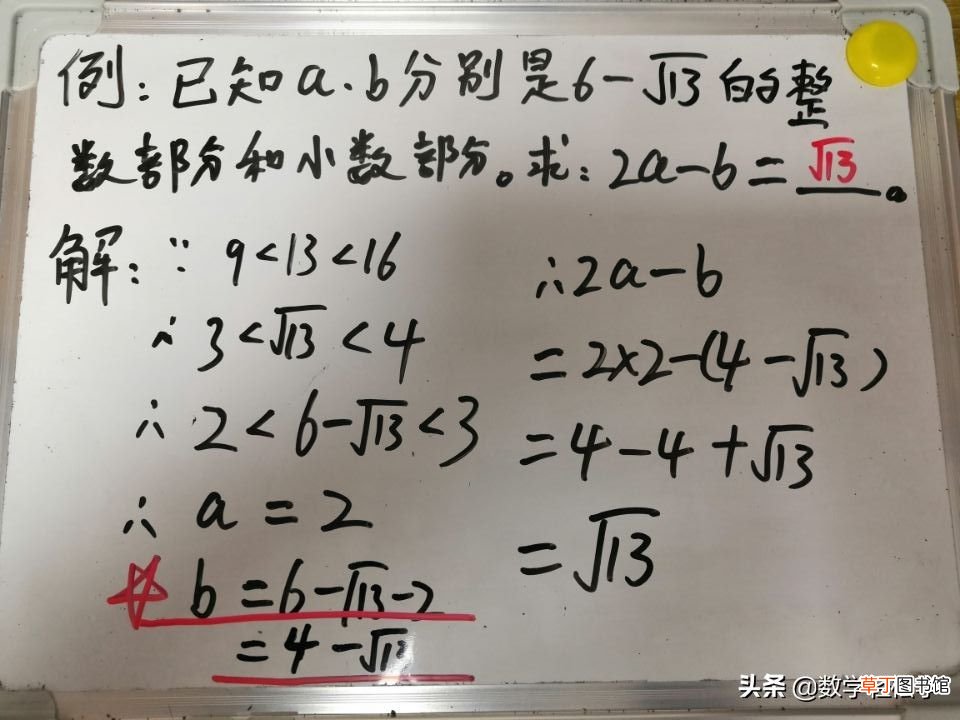 例：已知a、b分别是6-√13的整
数部分和小数部分。求：2a-b=√13。
解：∵ 9<13<16
∴ 3<√13<4
∴ 2<6-√13<3
∴ a=2
☆ b=6-√13-2
=4-√13
∴2a-b
=2×2-(4-√13)
=4-4+√13
=√13
头条 @数学
草丁图书馆